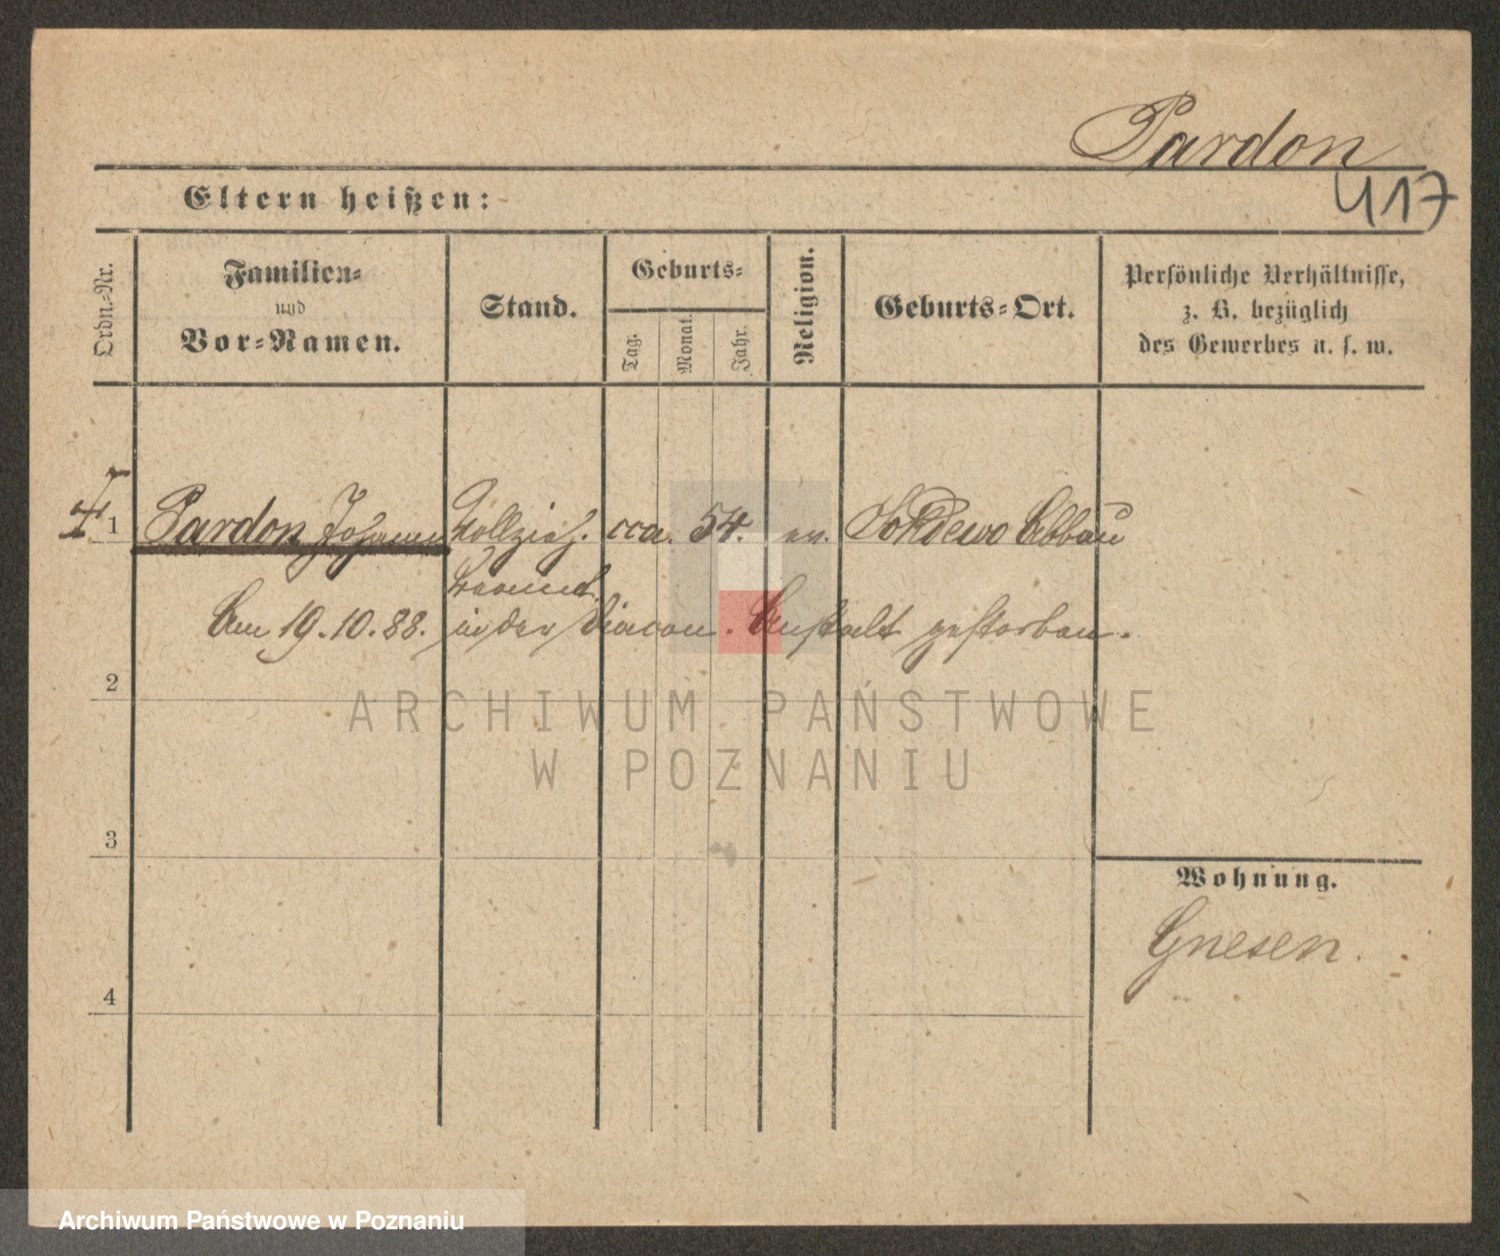 Pardon
417
Eltern heißen:
Ordn.-Nr.
Familien-
und
Vor-Namen.
Stand.
Geburts-
Tag.
Monat.
Jahr.
Religion.
Geburts-Ort.
Persönliche Verhältnisse,
z. B. bezüglich
des Gewerbes u. s. w.
1 Pardon Johann Vollzieh. cca. 54. ev. Abbau
beamt.
Am 19.10.88. in der Diacon. Anstalt gestorben.
2
3
4
Wohnung.
Gnesen.
ARCHIWUM PAŃSTWOWE
W POZNANIU
Archiwum Państwowe w Poznaniu